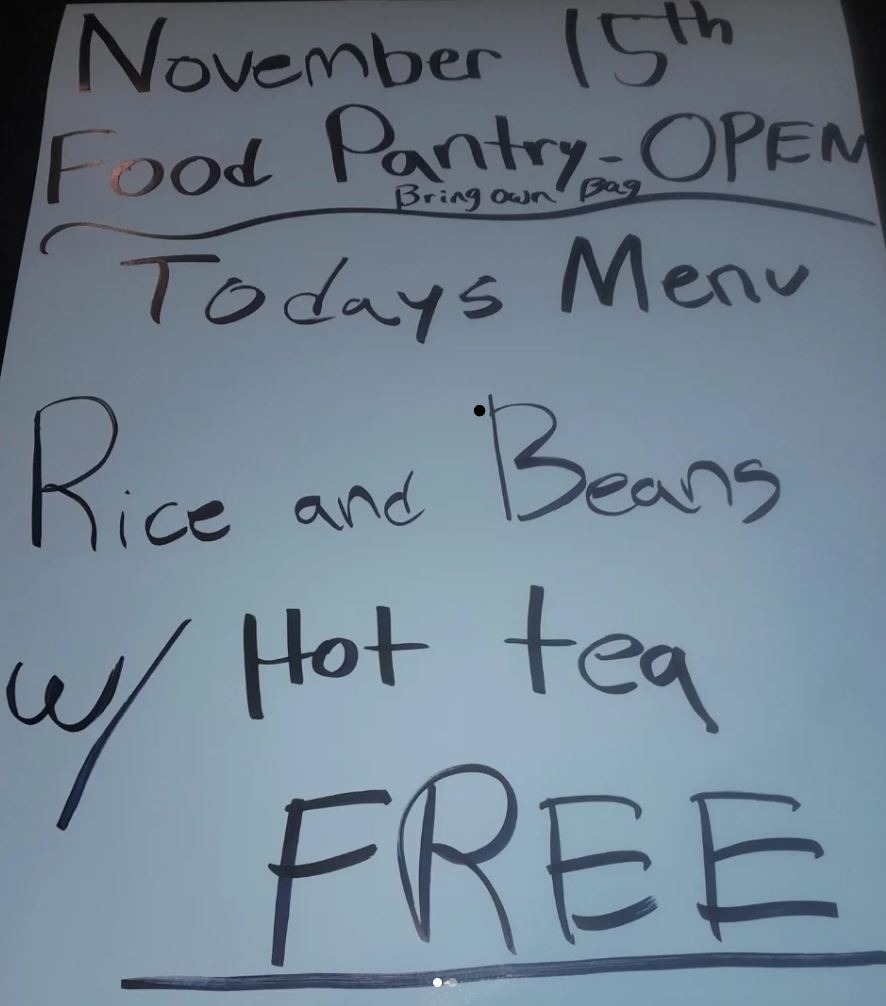 November 15th
Food Pantry-OPEN
Bring own bag
Todays Menu
Rice and Beans
w/ Hot tea
FREE